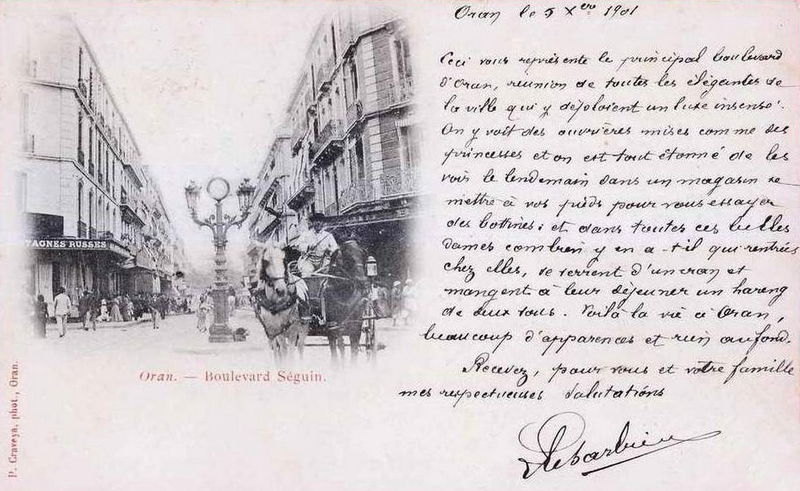 Oran le 5 Xbre 1901
Ceci vous représente le principal boulevard
d'Oran, réunion de toutes les élégantes de
la ville qui y déploient un luxe insensé.
On y voit des ouvrières mises comme des
princesses et on est tout étonné de les
voir le lendemain dans un magasin se
mettre à vos pieds pour vous essayer
des bottines; et dans toutes ces belles
dames combien y en a-t-il qui rentrées
chez elles, se serrent d'un cran et
mangent à leur déjeuner un hareng
de deux sous. Voilà la vie à Oran,
beaucoup d'apparences et rien au fond.
Recevez, pour vous et votre famille
mes respectueuses salutations
TAGNES RUSSES
Oran. — Boulevard Séguin.
P. Craveya, phot., Oran.